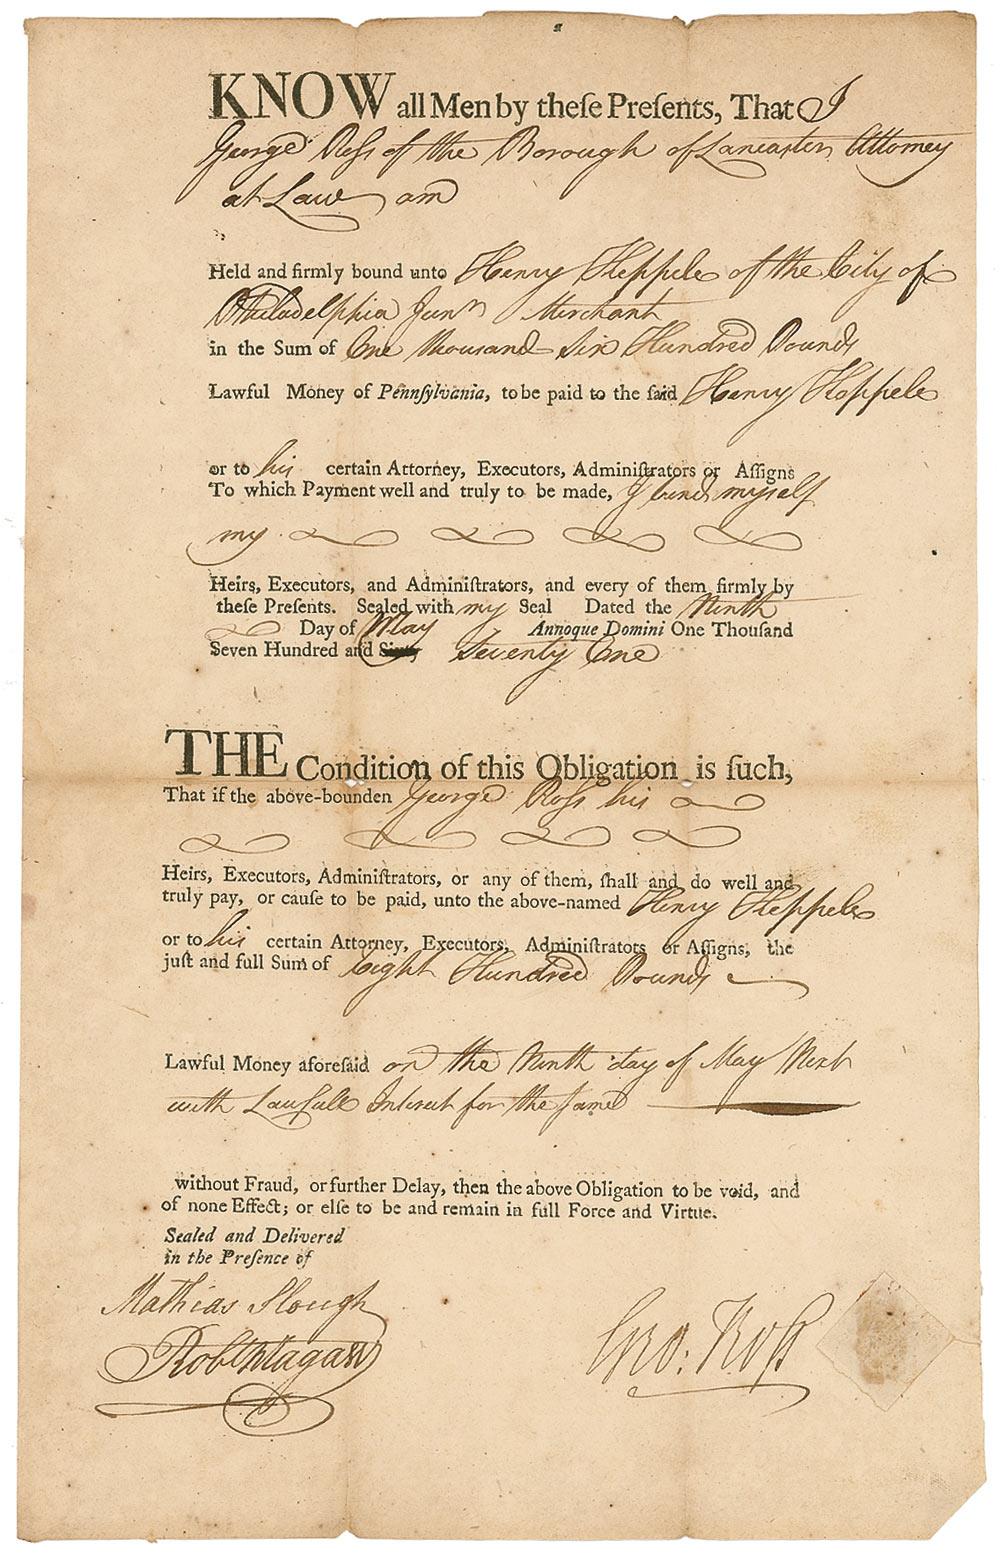 KNOW all Men by theſe Preſents, That I
George Roſs of the Borough of Lancaster Attorney
at Law am
Held and firmly bound unto Henry Keppele of the City of
Philadelphia Junr Merchant
in the Sum of One thousand Six Hundred Pounds
Lawful Money of Pennſylvania, to be paid to the ſaid Henry Keppele
or to his certain Attorney, Executors, Adminiſtrators or Aſſigns
To which Payment well and truly to be made, I bind myself
my
Heirs, Executors, and Adminiſtrators, and every of them firmly by
theſe Preſents. Sealed with my Seal Dated the Ninth
Day of May Annoque Domini One Thouſand
Seven Hundred and Sixty Seventy One
THE Condition of this Obligation is ſuch,
That if the above-bounden George Roſs his
Heirs, Executors, Adminiſtrators, or any of them, ſhall and do well and
truly pay, or cauſe to be paid, unto the above-named Henry Keppele
or to his certain Attorney, Executors, Adminiſtrators or Aſſigns, the
juſt and full Sum of Eight Hundred Pounds
Lawful Money aforeſaid on the Ninth day of May Next
with Lawfull Interest for the same
without Fraud, or further Delay, then the above Obligation to be void, and
of none Effect; or elſe to be and remain in full Force and Virtue.
Sealed and Delivered
in the Preſence of
Mathias Slough
Robt Magaw
Geo: Roſs